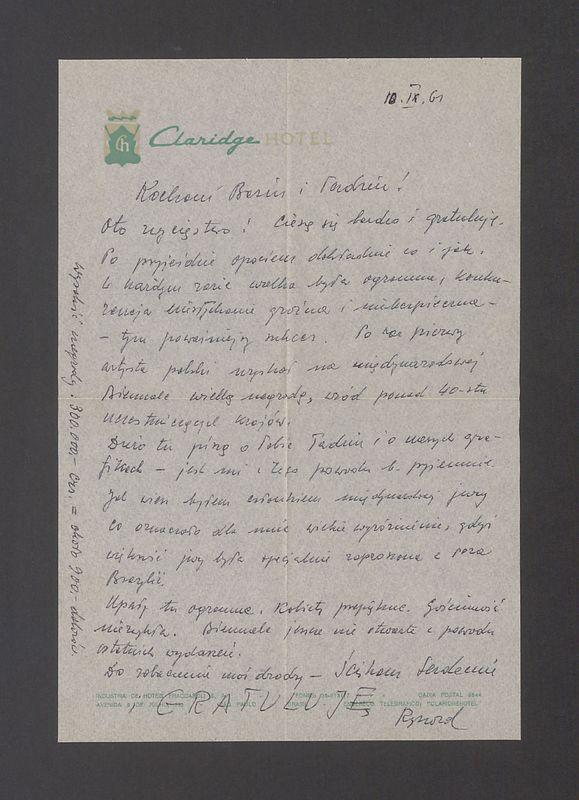 10.IX.61
Claridge HOTEL
Kochani Basiu i Tadziu!
Oto zwycięstwo! Cieszę się bardzo i gratuluję.
Po przyjeździe opowiem dokładnie co i jak.
W każdym razie walka była ogromna, konku-
rencja niesłychanie groźna i niebezpieczna -
- tym poważniejszy sukces. Po raz pierwszy
artysta polski uzyskał na międzynarodowej
Biennale wielką nagrodę, wśród ponad 40-stu
uczestniczących krajów.
Dużo tu piszą o Tobie Tadziu i o naszych gra-
fikach - jest mi z tego powodu b. przyjemnie.
Jak wiesz byłem członkiem międzynarod. jury
co oznaczało dla mnie wielkie wyróżnienie, gdyż
większość jury była specjalnie zaproszona z poza
Brazylii.
Upały tu ogromne. Kobiety przepiękne. Gościnność
niezwykła. Biennale jeszcze nie otwarte z powodu
ostatnich wydarzeń.
Do zobaczenia moi drodzy - Ściskam serdecznie
GRATULUJĘ
Ryszard
Wysokość nagrody: 300.000.- cruz. = około 900.- dolarów.
INDUSTRIA DE HOTEIS
AVENIDA 9 DE JULHO
SÃO PAULO
BRASIL
CAIXA POSTAL
ENDEREÇO TELEGRAFICO: "CLARIDGEHOTEL"